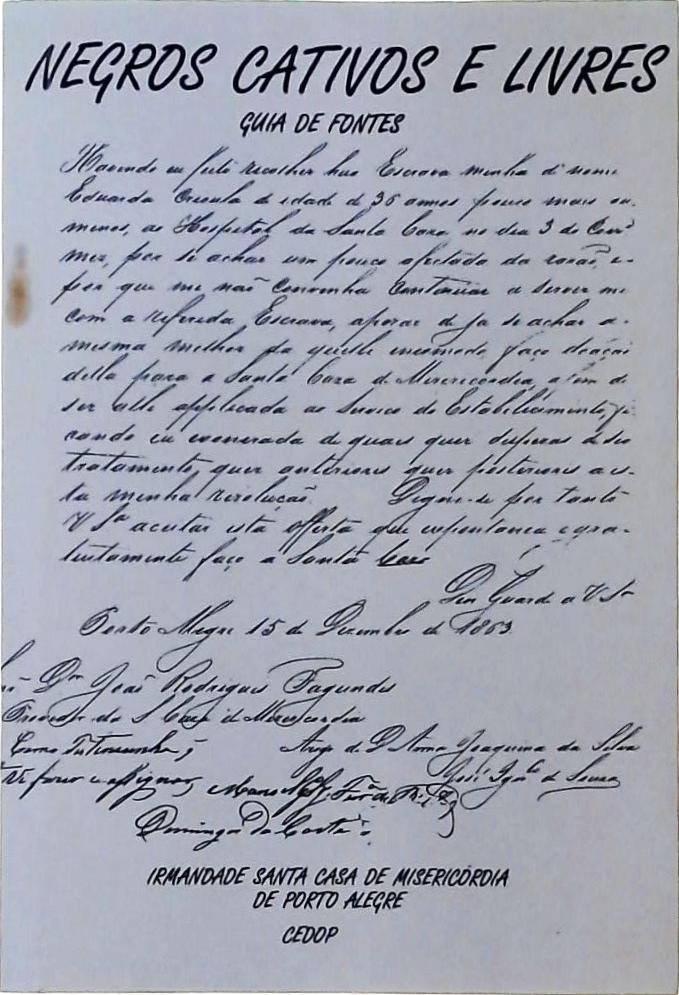 NEGROS CATIVOS E LIVRES
GUIA DE FONTES
Havendo eu feito recolher hua Escrava minha de nome
Eduarda Crioula de idade de 36 annos pouco mais ou
menos, ao Hospital da Santa Caza no dia 3 do Corre
mez, por se achar um pouco afectada da rasão, e
por que me não convinha continuar a servir me
com a referida Escrava, apezar de ja se achar a
mesma melhor daquelle incomodo, faço doação
della para a Santa Caza de Misericordia, a fim de
ser alli applicada ao Serviço do Estabelicimento, fi
cando eu exonerada de quais quer despezas de seu
tratamento, quer anteriores quer posteriores a es-
ta minha rezolução. Digne-se por tanto
V Sª aceitar esta offerta que espontanea e gra-
tuitamente faço a Santa Caza
Deus Guarde a V Sª
Porto Alegre 15 de Dezembro de 1863
Dor João Rodrigues Fagundes
Provedor da S Caza de Misericordia
Como Testemunha, Arogo de D Anna Joaquina da Silva
José de Souza
Manoel
Domingos da Costa
IRMANDADE SANTA CASA DE MISERICÓRDIA
DE PORTO ALEGRE
CEDOP